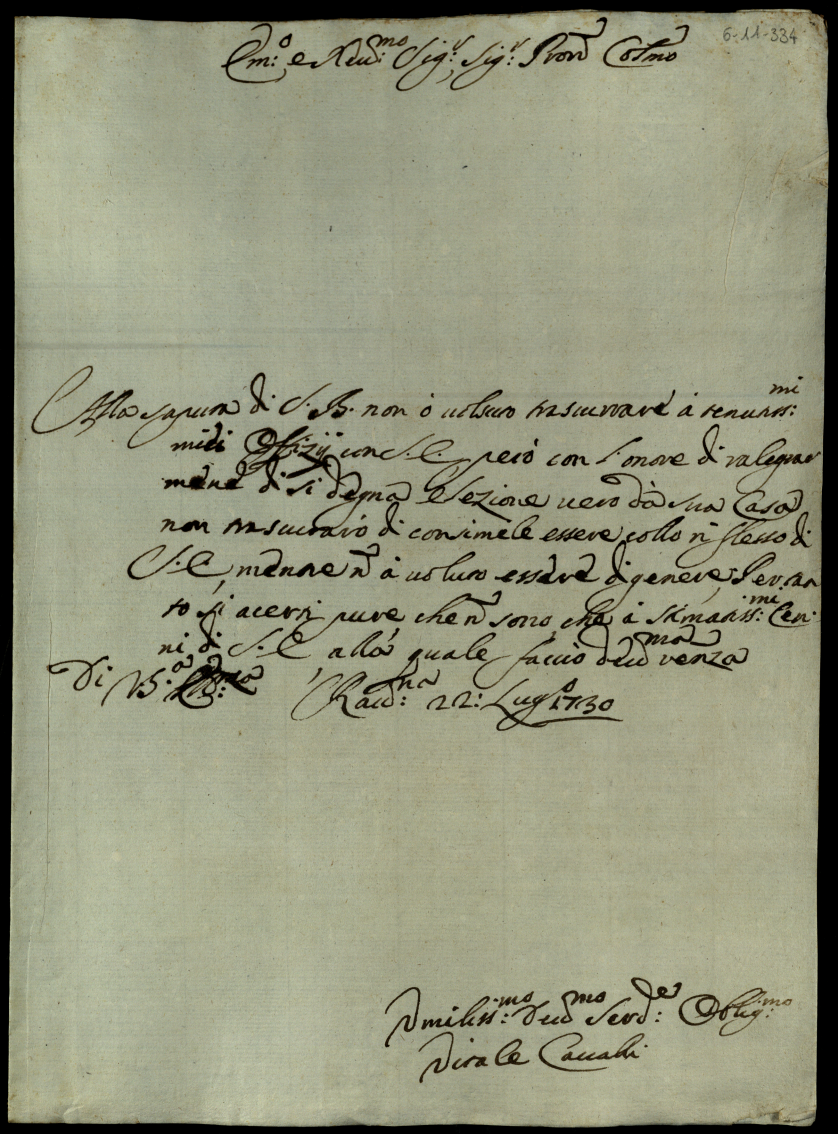 6-11-334
Em:o e Reud:mo Sig:r Sig:r Pron Colmo
Alla sapura di S. B. non ò uoluto trascurare à tenuiss:mi
miei Offizij con S. E. però con l'onore di ralegrar
mene di si degna Elezione uero dà sua Casa
non trascurarò di consimele essere collo riflesso di
S. E. mentre n à uoluto essere di genere; Per tan
to si acerti pure che n sono che à stimatiss:mi Cen
ni di S. E. allà quale faccio deuma
Di V. Ra 22: Lugo 1730
Vmiliss:mo Deumo Serd:e Oblig:mo
Vitale Caualli